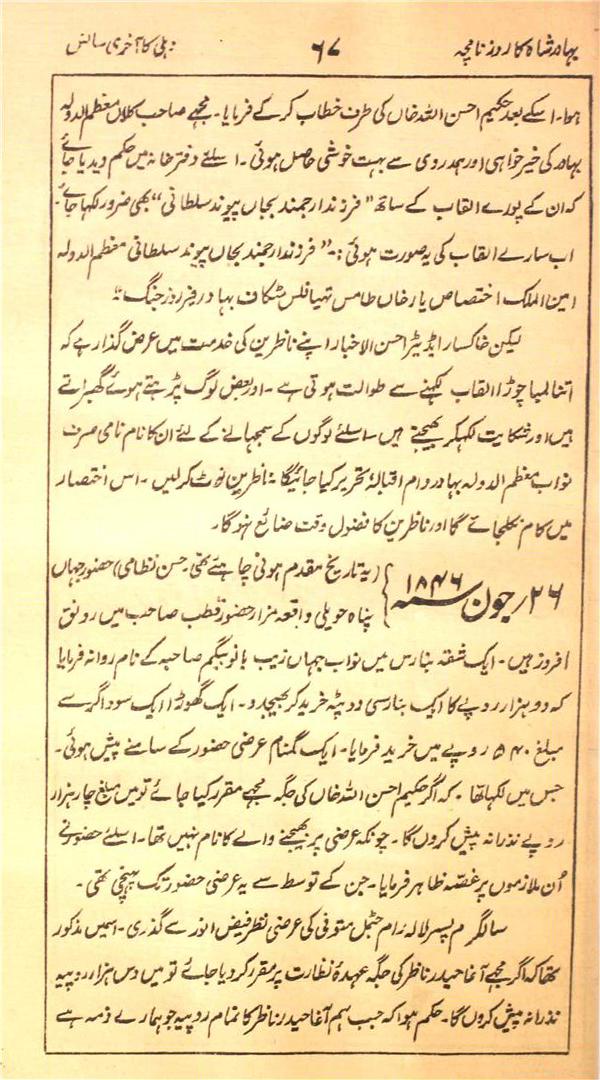 بہادر شاہ کا روزنامچہ ۶۷ دہلی کا آخری سانس
ہوا۔ اسکے بعد حکیم احسن اللہ خاں کی طرف خطاب کر کے فرمایا۔ مجھے صاحب کلاں معظم الدولہ
بہادر کی خیر خواہی اور ہمدردی سے بہت خوشی حاصل ہوئی۔ اسلئے دفتر خانہ میں حکم دیدیا جائے
کہ ان کے پورے القاب کے ساتھ "فرزند ارجمند بجاں پیوند سلطانی" بھی ضرور لکھا جائے۔
اب سارے القاب کی یہ صورت ہوئی:۔ "فرزند ارجمند بجاں پیوند سلطانی معظم الدولہ
امین الملک اختصاص یار خاں طامس تھیافلس مٹکاف بہادر فیروز جنگ"
لیکن خاکسار ایڈیٹر احسن الاخبار اپنے ناظرین کی خدمت میں عرض گذار ہے کہ
اتنا لمبا چوڑا القاب لکھنے سے طوالت ہوتی ہے۔ اور بعض لوگ پڑہتے ہوئے گھبراتے
ہیں اور شکایت لکھکر بھیجتے ہیں۔ اسلئے لوگوں کے سمجہانے کے لئے ان کا نام نامی صرف
نواب معظم الدولہ بہادر دام اقبالہٗ تحریر کیا جائیگا۔ ناظرین نوٹ کر لیں۔ اس اختصار
میں کام نکلجائے گا اور ناظرین کا فضول وقت ضائع نہوگا۔
۲۶؍ جون سنہ ۱۸۴۶ } (یہ تاریخ مقدم ہونی چاہئے تھی۔ حسن نظامی) حضور جہاں
پناہ حویلی واقعہ مزار حضور قطب صاحب میں رونق
افروز ہیں۔ ایک شقہ بنارس میں نواب جہاں زیب بانو بیگم صاحبہ کے نام روانہ فرمایا
کہ دو ہزار روپے کا ایک بنارسی دوپٹہ خرید کر بھیجدو۔ ایک گھوڑا ایک سوداگر سے
مبلغ ۵۴۰ روپے میں خرید فرمایا۔ ایک گمنام عرضی حضور کے سامنے پیش ہوئی۔
جس میں لکھا تھا۔ کہ اگر حکیم احسن اللہ خاں کی جگہ مجھے مقرر کیا جائے تو میں مبلغ چار ہزار
روپے نذرانہ پیش کروں گا۔ چونکہ عرضی پر بھیجنے والے کا نام نہیں تھا۔ اسلئے حضور نے
اُن ملازموں پر غصہ ظاہر فرمایا۔ جن کے توسط سے یہ عرضی حضور تک پہنچی تھی۔
سالگرم پسر لالہ رام متوفی کی عرضی نظر فیض انور سے گذری۔ اسمیں مذکور
تھا کہ اگر مجھے آغا حیدر ناظر کی جگہ عہدۂ نظارت پر مقرر کر دیا جائے تو میں دس ہزار روپیہ
نذرانہ پیش کروں گا۔ حکم ہوا کہ جب ہم آغا حیدر ناظر کا تمام روپیہ جو ہمارے ذمہ ہے